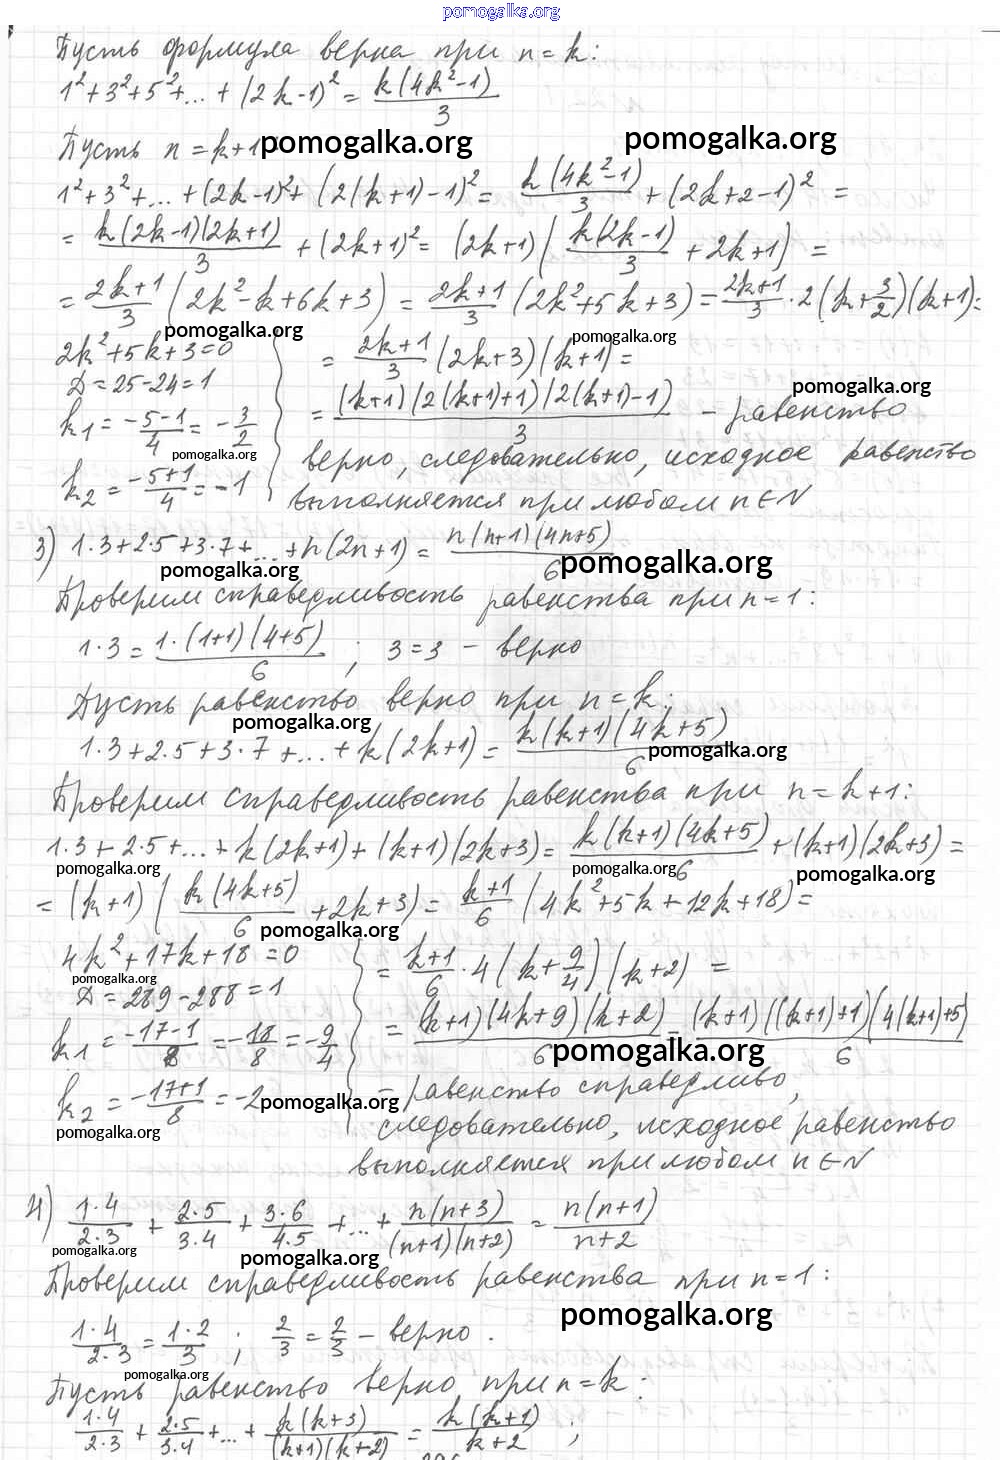 pomogalka.org
Пусть формула верна при n=k:
1²+3²+5²+...+(2k-1)² = k(4k²-1)/3
Пусть n=k+1
pomogalka.org pomogalka.org
1²+3²+...+(2k-1)²+(2(k+1)-1)² = k(4k²-1)/3 + (2k+2-1)² =
= k(2k-1)(2k+1)/3 + (2k+1)² = (2k+1)(k(2k-1)/3 + 2k+1) =
= 2k+1/3 (2k²-k+6k+3) = 2k+1/3 (2k²+5k+3) = 2k+1/3 · 2(k+3/2)(k+1) =
pomogalka.org pomogalka.org
2k²+5k+3=0
Д=25-24=1
k₁ = -5-1/4 = -3/2
pomogalka.org
k₂ = -5+1/4 = -1
= 2k+1/3 (2k+3)(k+1) =
pomogalka.org
= (k+1)(2(k+1)+1)(2(k+1)-1)/3 - равенство
верно, следовательно, исходное равенство
выполняется при любом n∈N
3) 1·3+2·5+3·7+...+n(2n+1) = n(n+1)(4n+5)/6
pomogalka.org pomogalka.org
Проверим справедливость равенства при n=1:
1·3 = 1·(1+1)(4+5)/6 ; 3=3 - верно
Пусть равенство верно при n=k:
pomogalka.org
1·3+2·5+3·7+...+k(2k+1) = k(k+1)(4k+5)/6
pomogalka.org
Проверим справедливость равенства при n=k+1:
1·3+2·5+...+k(2k+1)+(k+1)(2k+3) = k(k+1)(4k+5)/6 + (k+1)(2k+3) =
pomogalka.org pomogalka.org pomogalka.org
= (k+1)(k(4k+5)/6 + 2k+3) = k+1/6 (4k²+5k+12k+18) =
pomogalka.org
4k²+17k+18=0
pomogalka.org
Д=289-288=1
k₁ = -17-1/8 = -18/8 = -9/4
k₂ = -17+1/8 = -2
pomogalka.org
pomogalka.org
= k+1/6 · 4(k+9/4)(k+2) =
= (k+1)(4k+9)(k+2)/6 = (k+1)((k+1)+1)(4(k+1)+5)/6
pomogalka.org
- равенство справедливо,
следовательно, исходное равенство
выполняется при любом n∈N
4) 1·4/2·3 + 2·5/3·4 + 3·6/4·5 + ... + n(n+3)/(n+1)(n+2) = n(n+1)/n+2
pomogalka.org pomogalka.org
Проверим справедливость равенства при n=1:
pomogalka.org
1·4/2·3 = 1·2/3 ; 2/3 = 2/3 - верно.
pomogalka.org
Пусть равенство верно при n=k:
1·4/2·3 + 2·5/3·4 + ... + k(k+3)/(k+1)(k+2) = k(k+1)/k+2 ;